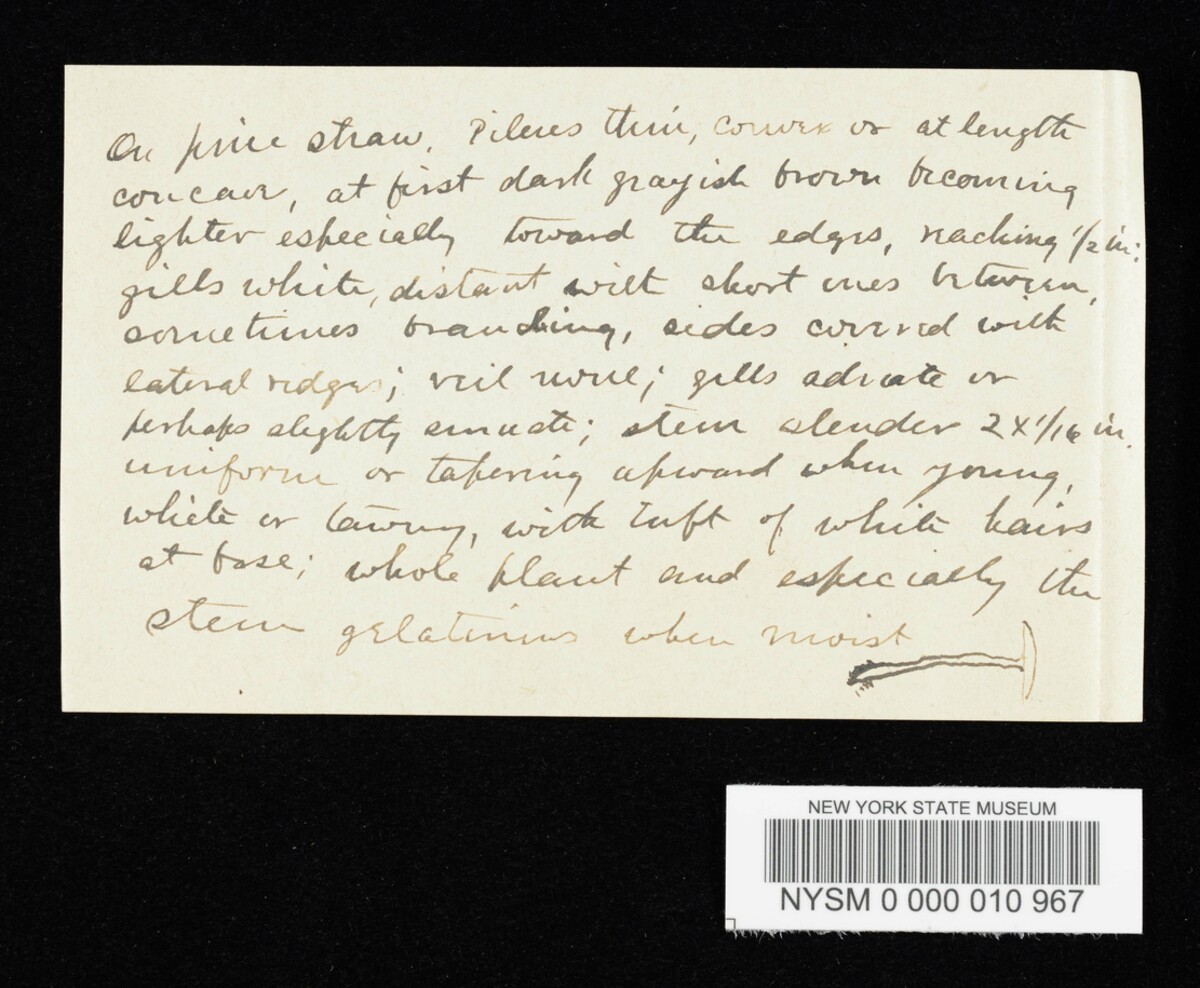 On pine straw. Pileus thin, convex or at length
concave, at first dark grayish brown becoming
lighter especially toward the edges, reaching 1/2 in:
gills white, distant with short ones between,
sometimes branching, sides covered with
lateral ridges; veil none; gills adnate or
perhaps slightly sinuate; stem slender 2x1/16 in.
uniform or tapering upward when young,
white or tawny, with tuft of white hairs
at base; whole plant and especially the
stem gelatinous when moist
NEW YORK STATE MUSEUM
NYSM 0 000 010 967